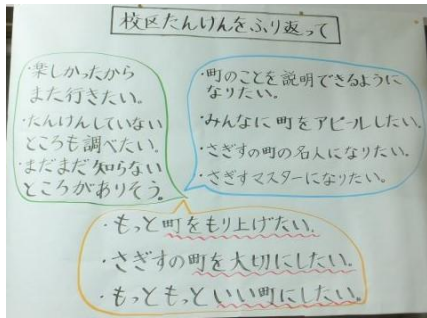 校区たんけんをふり返って
・楽しかったから
また行きたい。
・たんけんしていない
ところも調べたい。
・まだまだ知らない
ところがありそう。
・町のことを説明できるように
なりたい。
・みんなに町をアピールしたい。
・さぎすの町の名人になりたい。
・さぎすマスターになりたい。
・もっと町をもり上げたい。
・さぎすの町を大切にしたい。
・もっともっといい町にしたい。